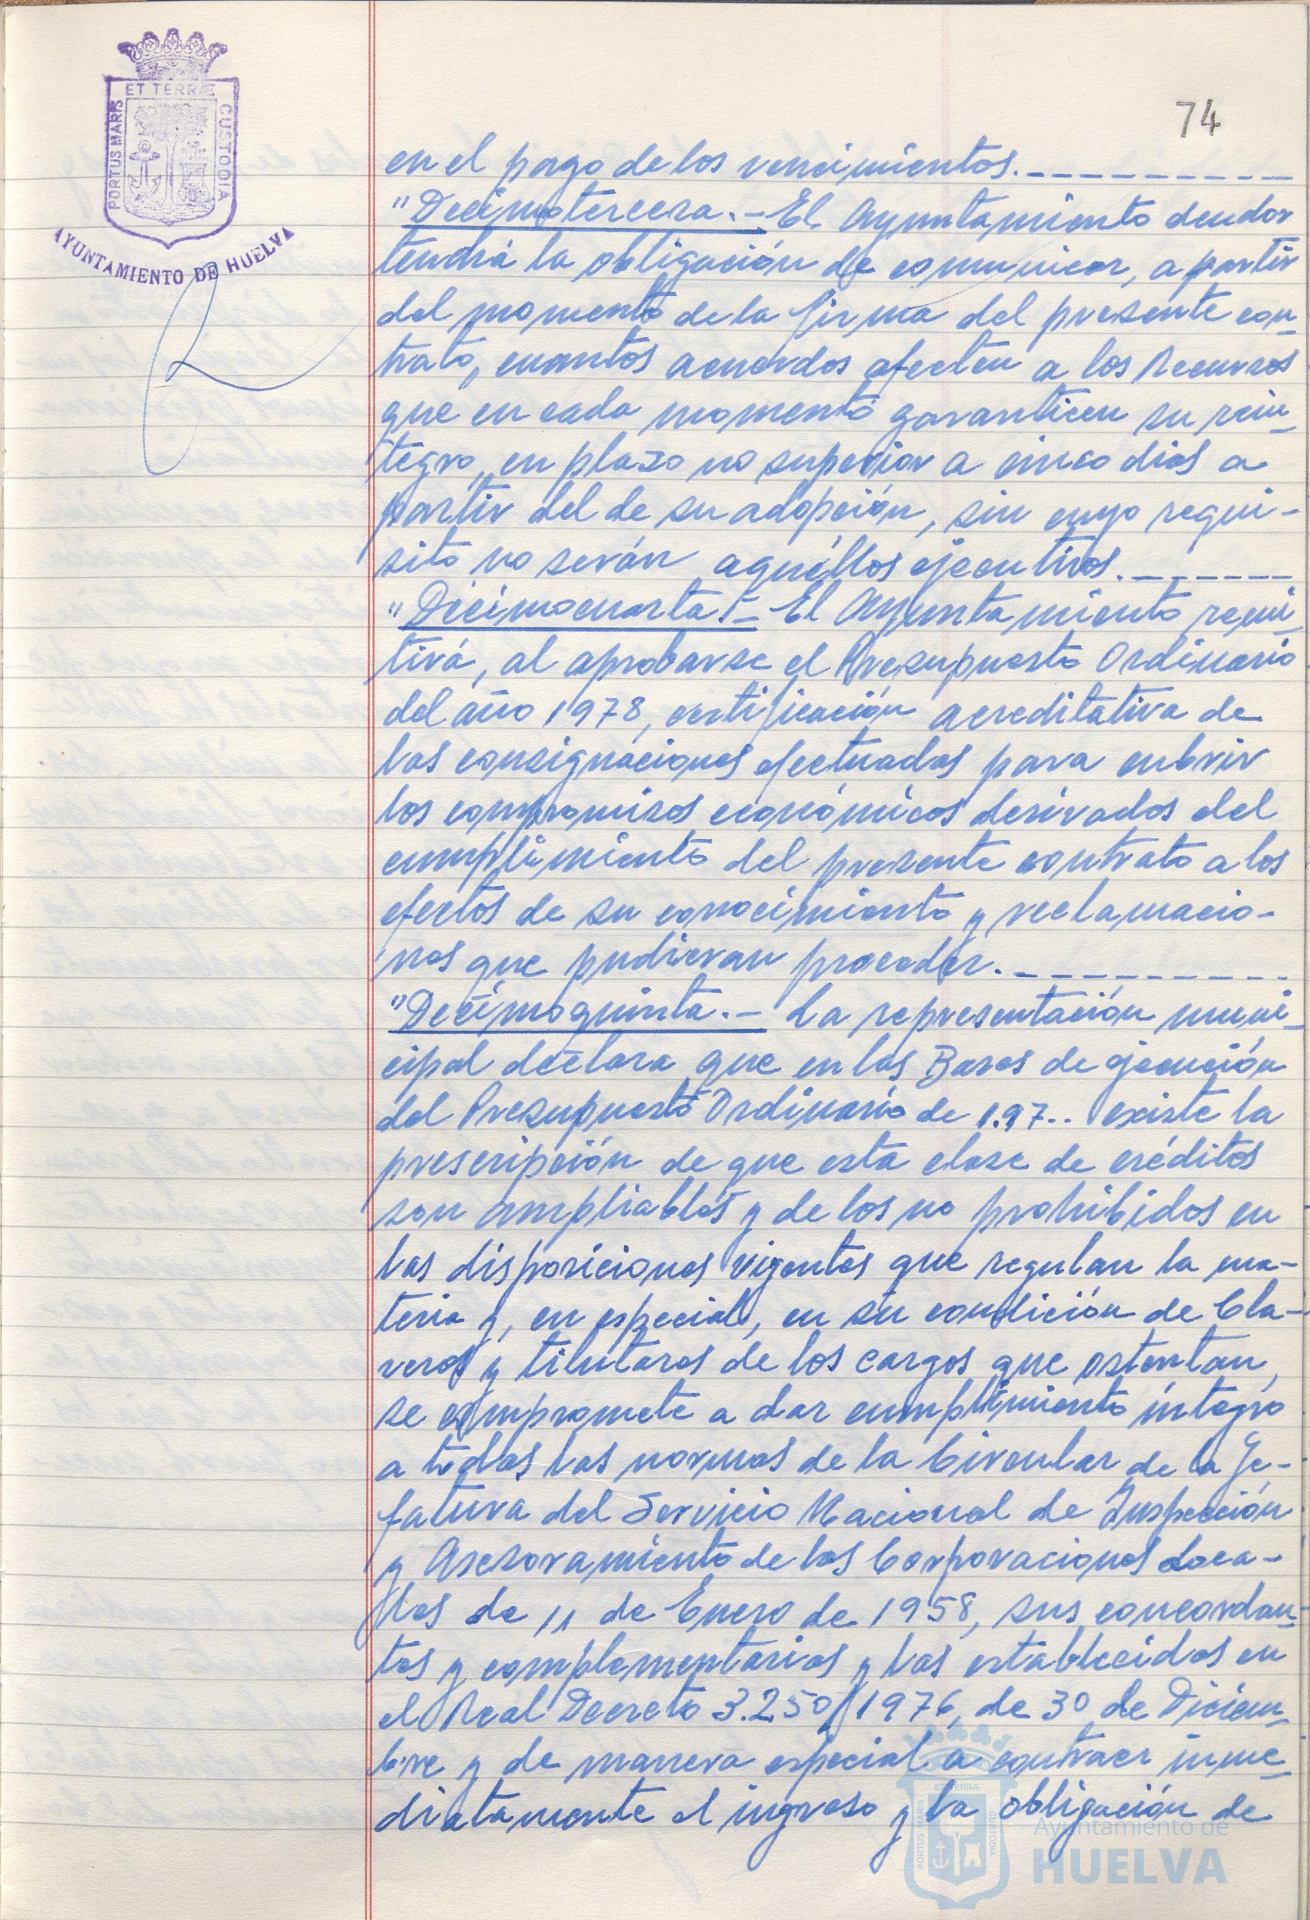 PORTUS MARIS ET TERRÆ CUSTODIA
AYUNTAMIENTO DE HUELVA
74
en el pago de los vencimientos.----------
"Decimotercera.- El Ayuntamiento deudor
tendrá la obligación de comunicar, a partir
del momento de la firma del presente con-
trato, cuantos acuerdos afecten a los Recursos
que en cada momento garanticen su rein-
tegro, en plazo no superior a cinco dias a
partir del de su adopción, sin cuyo requi-
sito no serán aquéllos ejecutivos.-------
"Decimocuarta.- El Ayuntamiento remi-
tirá, al aprobarse el Presupuesto Ordinario
del año 1978, certificación acreditativa de
las consignaciones efectuadas para cubrir
los compromisos económicos derivados del
cumplimiento del presente contrato a los
efectos de su conocimiento y reclamacio-
nes que pudieran proceder.----------
"Decimoquinta.- La representación muni-
cipal declara que en las Bases de ejecución
del Presupuesto Ordinario de 1.97.. existe la
prescripción de que esta clase de créditos
son ampliables y de los no prohibidos en
las disposiciones vigentes que regulan la ma-
teria y, en especial, en su condición de Cla-
veros y titulares de los cargos que ostentan,
se compromete a dar cumplimiento íntegro
a todas las normas de la Circular de la Je-
fatura del Servicio Nacional de Inspección
y Asesoramiento de las Corporaciones Loca-
les de 11 de Enero de 1958, sus concordan-
tes y complementarias y las establecidas en
el Real Decreto 3.250/1976, de 30 de Diciem-
bre y de manera especial a contraer inme-
diatamente el ingreso y la obligación de
PORTUS MARIS ET TERRÆ CUSTODIA
Ayuntamiento de
HUELVA